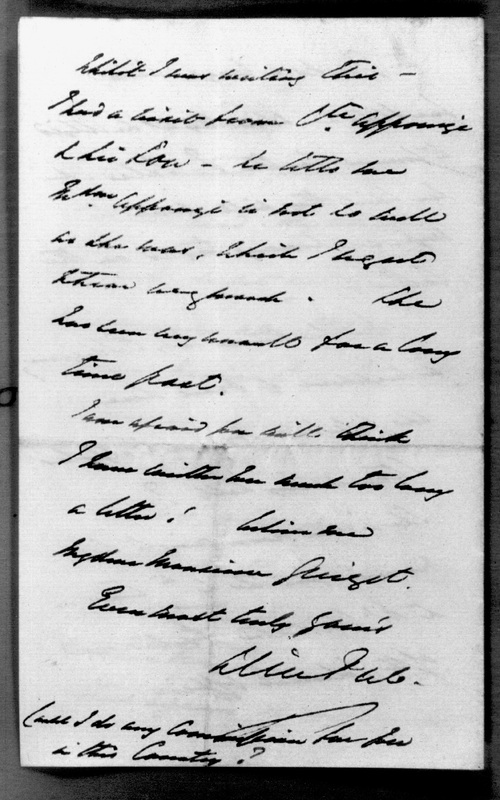 Whilst I was writing this —
I had a visit from Cte Apponyi
& his Son — he tells me
Mdme Apponyi is not so well
as she was, which I regret
very much. She
has been very unwell for a long
time past.
I am afraid you will think
I have written you much too long
a letter! believe me
My dear Monsieur Guizot.
Ever most truly yours
(Could I do any Commission for you
in this Country?